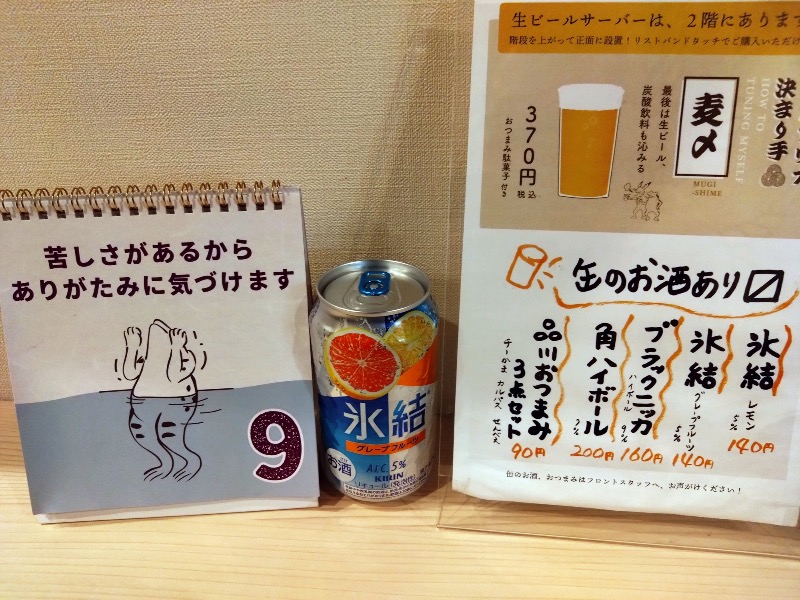 苦しさがあるから
ありがたみに気づけます
9
氷結
グレープフルーツ
お酒
ALC.5%
KIRIN
生ビールサーバーは、2階にあります
階段を上がって正面に設置!リストバンドタッチでご購入いただけ
決まり手
HOW TO
TUNING MYSELF
麦〆
MUGI
-SHIME
最後は生ビール、
炭酸飲料も沁みる
370円
税込
おつまみ駄菓子付き
缶のお酒あり〼
氷結
レモン
5%
140円
氷結
グレープフルーツ
5%
140円
ブラックニッカ
ハイボール
9%
160円
角ハイボール
7%
200円
品川おつまみ
3点セット
チーかま カルパス せんべえ
90円
缶のお酒、おつまみはフロントスタッフへ、お声がけください!